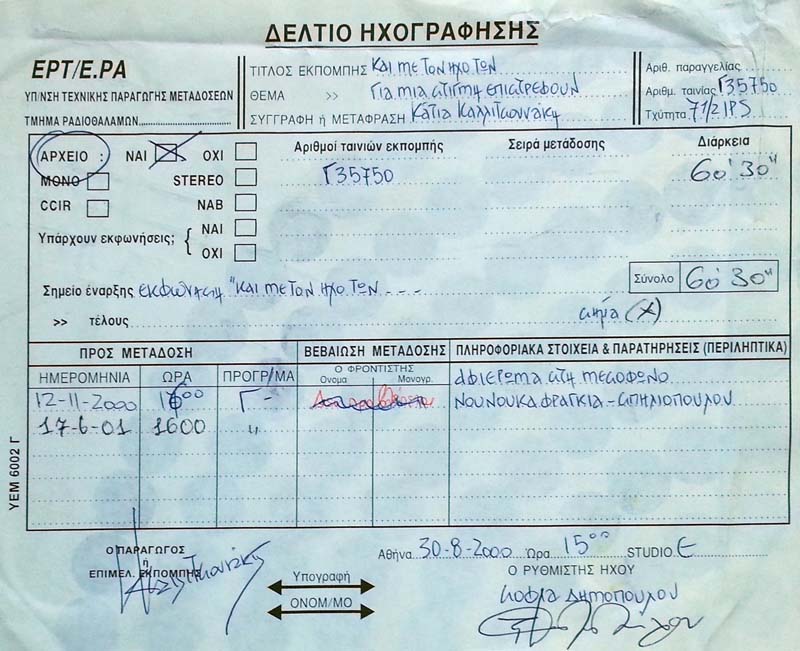 ΔΕΛΤΙΟ ΗΧΟΓΡΑΦΗΣΗΣ
ΕΡΤ/Ε.ΡΑ
ΥΠ/ΝΣΗ ΤΕΧΝΙΚΗΣ ΠΑΡΑΓΩΓΗΣ ΜΕΤΑΔΟΣΕΩΝ
ΤΜΗΜΑ ΡΑΔΙΟΘΑΛΑΜΩΝ
ΤΙΤΛΟΣ ΕΚΠΟΜΠΗΣ και με τον ηχο των
ΘΕΜΑ >> Για μια στιγμη επιστρεφουν
ΣΥΓΓΡΑΦΗ ή ΜΕΤΑΦΡΑΣΗ Κάτια Καλλιτσουνάκη
Αριθ. παραγγελίας
Αριθμ. ταινίας Γ35750
Τχύτητα 7 1/2 IPS
ΑΡΧΕΙΟ : ΝΑΙ ΟΧΙ
ΜΟΝΟ STEREO
CCIR NAB
Υπάρχουν εκφωνήσεις; ΝΑΙ
ΟΧΙ
Αριθμοί ταινιών εκπομπής Σειρά μετάδοσης Διάρκεια
Γ35750 60' 30"
Σημείο έναρξης εκφώνηση "και με τον ηχο των - - -
Σύνολο 60' 30"
>> τέλους σήμα (x)
ΠΡΟΣ ΜΕΤΑΔΟΣΗ ΒΕΒΑΙΩΣΗ ΜΕΤΑΔΟΣΗΣ ΠΛΗΡΟΦΟΡΙΑΚΑ ΣΤΟΙΧΕΙΑ & ΠΑΡΑΤΗΡΗΣΕΙΣ (ΠΕΡΙΛΗΠΤΙΚΑ)
ΗΜΕΡΟΜΗΝΙΑ ΩΡΑ ΠΡΟΓΡ/ΜΑ Ο ΦΡΟΝΤΙΣΤΗΣ
Ονομα Μονογρ.
αφιερωμα στη μεσοφωνο
12-11-2000 Γ- Νουνουκα φραγκια-σπηλιοπουλου
17-6-01 1600 "
ΥΕΜ 6002 Γ
Ο ΠΑΡΑΓΩΓΟΣ
ή
ΕΠΙΜΕΛ. ΕΚΠΟΜΠΗΣ
Υπογραφή
ΟΝΟΜ/ΜΟ
Αθήνα 30-8-2000 Ωρα 15⁰⁰ STUDIO E
Ο ΡΥΘΜΙΣΤΗΣ ΗΧΟΥ
σοφια Δημοπουλου